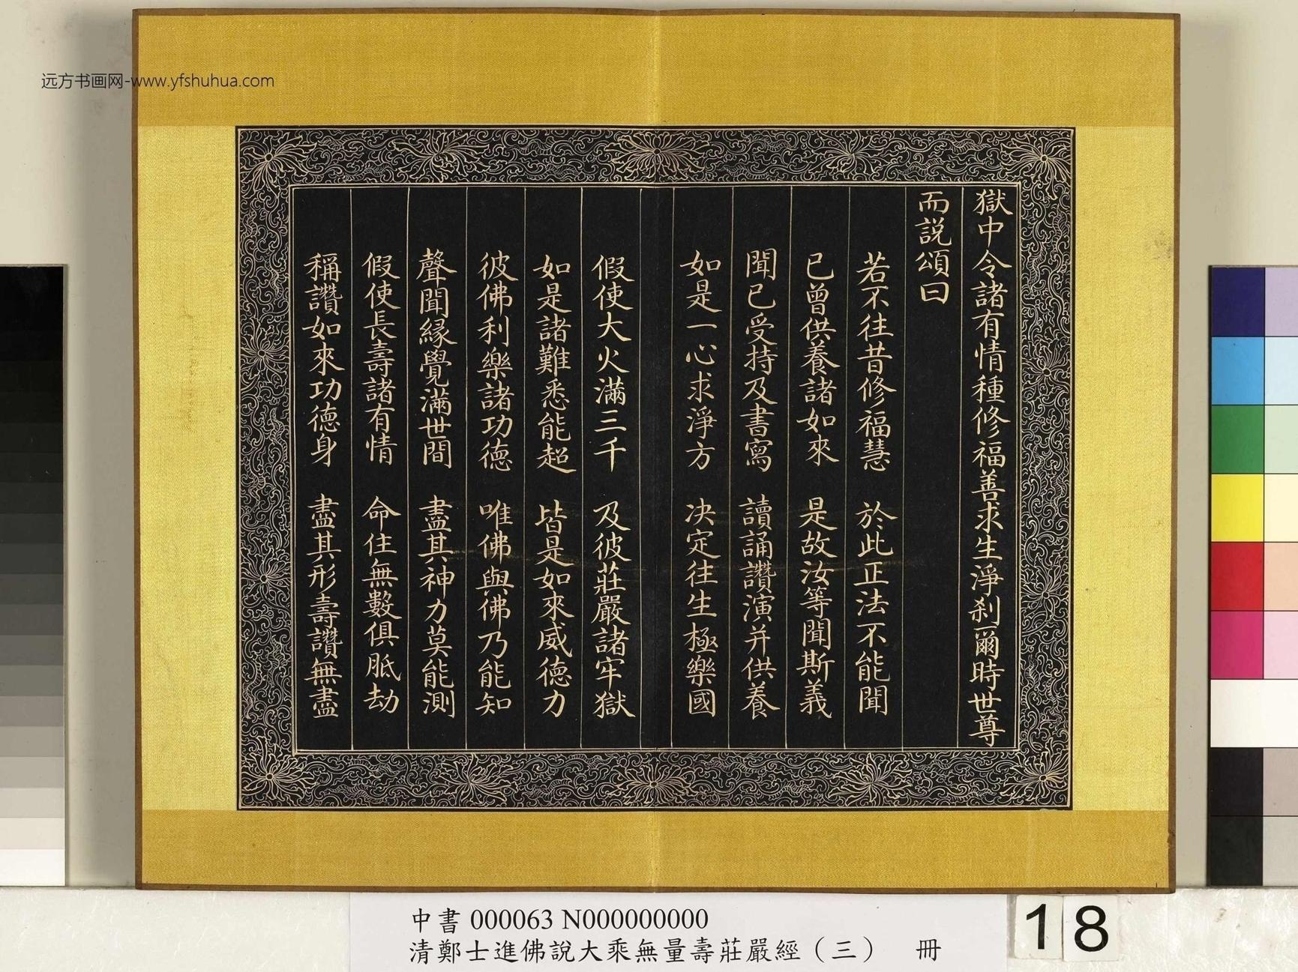 远方书画网-www.yfshuhua.com
獄中令諸有情種修福善求生淨刹爾時世尊
而説頌曰
若不往昔修福慧 於此正法不能聞
已曾供養諸如來 是故汝等聞斯義
聞已受持及書寫 讀誦讚演并供養
如是一心求淨方 决定往生極樂國
假使大火滿三千 及彼莊嚴諸牢獄
如是諸難悉能超 皆是如來威德力
彼佛利樂諸功德 唯佛與佛乃能知
聲聞緣覺滿世間 盡其神力莫能測
假使長壽諸有情 命住無數俱胝劫
稱讚如來功德身 盡其形壽讚無盡
中書 000063 N000000000
清鄭士進佛說大乘無量壽莊嚴經（三） 冊
18